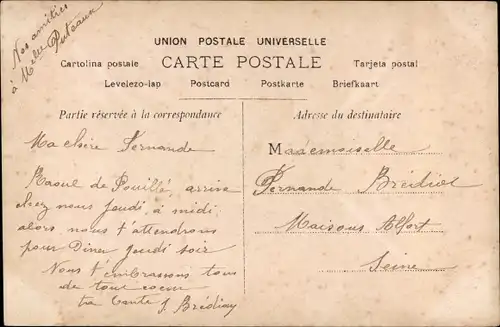 Nos amitiés
à Melle Puteaux
UNION POSTALE UNIVERSELLE
Cartolina postale CARTE POSTALE Tarjeta postal
Levelezo-lap Postcard Postkarte Briefkaart
Partie réservée à la correspondance
Ma chère Fernande
Raoul de Pouillé, arrive
chez nous Jeudi, à midi
alors, nous t'attendrons
pour Diner jeudi soir
Nous t'embrassons tous
de tout coeur
ta tante J. Brédiay
Adresse du destinataire
Mademoiselle
Fernande
Maisons Alfort
Seine